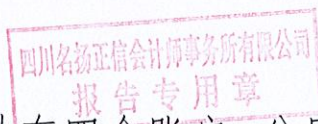 四川名扬正信会计师事务所有限公司
报告专用章